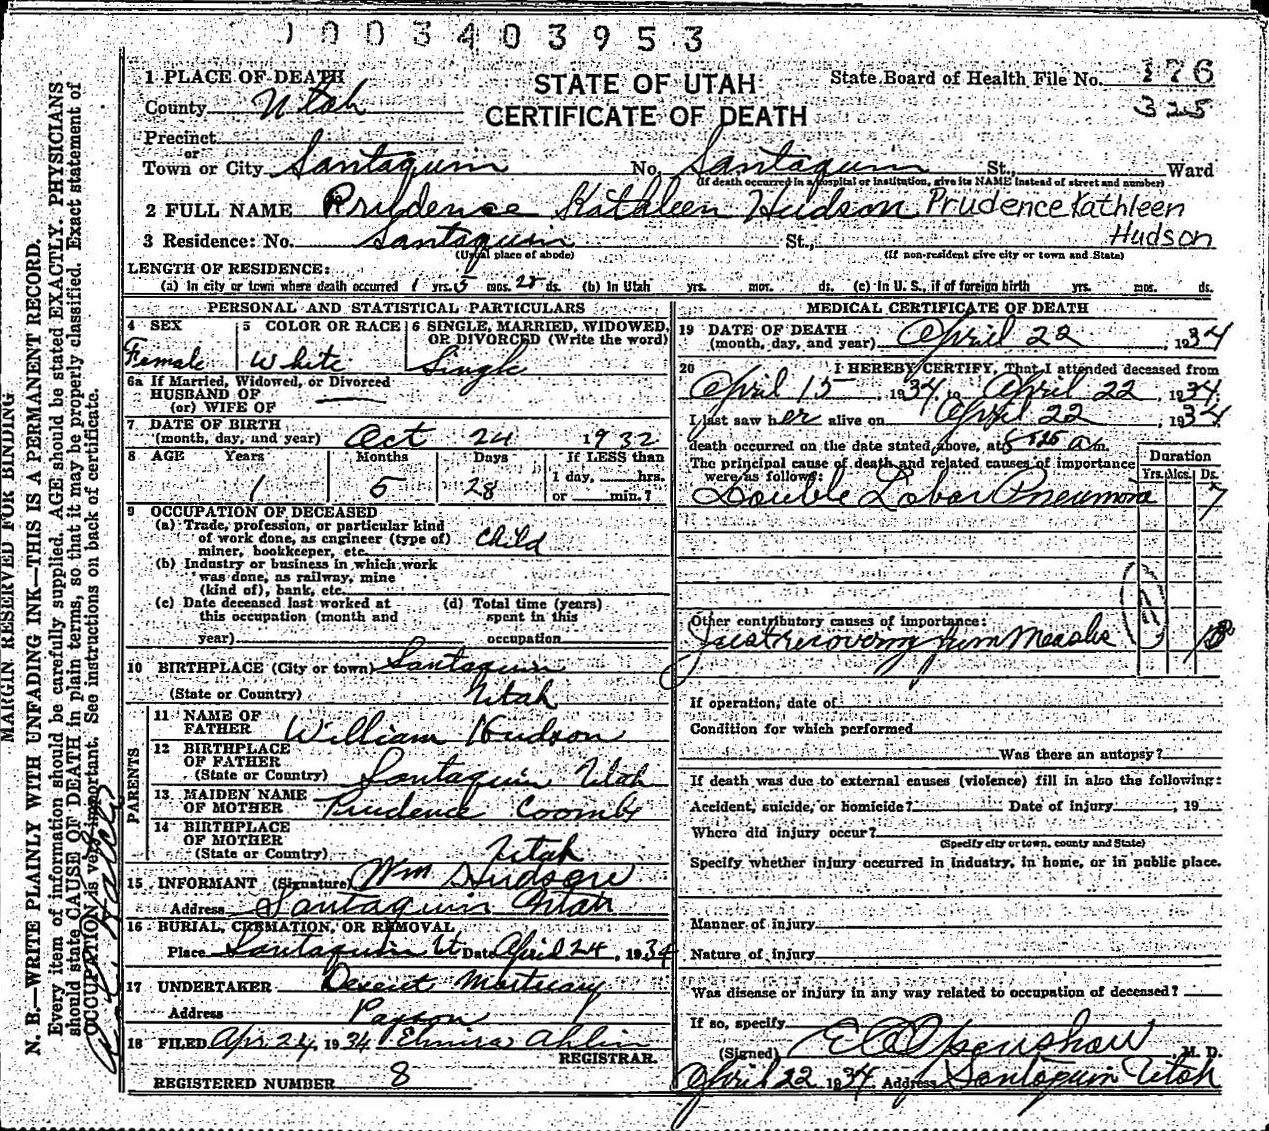 1003403953
1 PLACE OF DEATH
STATE OF UTAH
CERTIFICATE OF DEATH
State Board of Health File No. 176
325
County Utah
Precinct
or
Town or City Santaquin No. Santaquin St., Ward
(If death occurred in a hospital or institution, give its NAME instead of street and number)
2 FULL NAME Prudence Kathleen Hudson Prudence Kathleen
Hudson
3 Residence: No. Santaquin St.,
(Usual place of abode) (If non-resident give city or town and State)
LENGTH OF RESIDENCE:
(a) In city or town where death occurred 1 yrs. 5 mos. 28 ds. (b) In Utah yrs. mos. ds. (c) in U. S., if of foreign birth yrs. mos. ds.
PERSONAL AND STATISTICAL PARTICULARS
4 SEX 5 COLOR OR RACE 6 SINGLE, MARRIED, WIDOWED,
OR DIVORCED (Write the word)
Female White Single
6a If Married, Widowed, or Divorced
HUSBAND OF
(or) WIFE OF
7 DATE OF BIRTH
(month, day, and year) Oct 24 1932
8 AGE Years Months Days If LESS than
1 day, hrs.
or min.?
1 5 28
9 OCCUPATION OF DECEASED
(a) Trade, profession, or particular kind
of work done, as engineer (type of)
miner, bookkeeper, etc. Child
(b) Industry or business in which work
was done, as railway, mine
(kind of), bank, etc.
(c) Date deceased last worked at
this occupation (month and
year)
(d) Total time (years)
spent in this
occupation
10 BIRTHPLACE (City or town) Santaquin
(State or Country) Utah
PARENTS
11 NAME OF
FATHER William Hudson
12 BIRTHPLACE
OF FATHER
(State or Country) Santaquin Utah
13 MAIDEN NAME
OF MOTHER Prudence Coombs
14 BIRTHPLACE
OF MOTHER
(State or Country) Utah
15 INFORMANT (Signature) Wm Hudson
Address Santaquin Utah
16 BURIAL, CREMATION, OR REMOVAL
Place Santaquin Ut Date April 24, 1934
17 UNDERTAKER Mortuary
Address Payson
18 FILED Apr 24, 1934 Elmira Ahlin
REGISTRAR.
REGISTERED NUMBER 8
MEDICAL CERTIFICATE OF DEATH
19 DATE OF DEATH
(month, day, and year) April 22, 1934
20 I HEREBY CERTIFY, That I attended deceased from
April 15, 1934, to April 22, 1934
I last saw her alive on April 22, 1934
death occurred on the date stated above, at a m.
The principal cause of death and related causes of importance
were as follows:
Duration
Yrs. Mos. Ds.
Double Lobar Pneumonia 7
Other contributory causes of importance:
Just recovering from Measles
If operation, date of
Condition for which performed
Was there an autopsy?
If death was due to external causes (violence) fill in also the following:
Accident, suicide, or homicide? Date of injury, 19
Where did injury occur?
(Specify city or town, county and State)
Specify whether injury occurred in industry, in home, or in public place.
Manner of injury
Nature of injury
Was disease or injury in any way related to occupation of deceased?
If so, specify
(Signed) M. D.
April 22 1934 Address Santaquin Utah
MARGIN RESERVED FOR BINDING
N. B.—WRITE PLAINLY WITH UNFADING INK—THIS IS A PERMANENT RECORD.
Every item of information should be carefully supplied. AGE should be stated EXACTLY. PHYSICIANS
should state CAUSE OF DEATH in plain terms, so that it may be properly classified. Exact statement of
OCCUPATION is very important. See instructions on back of certificate.